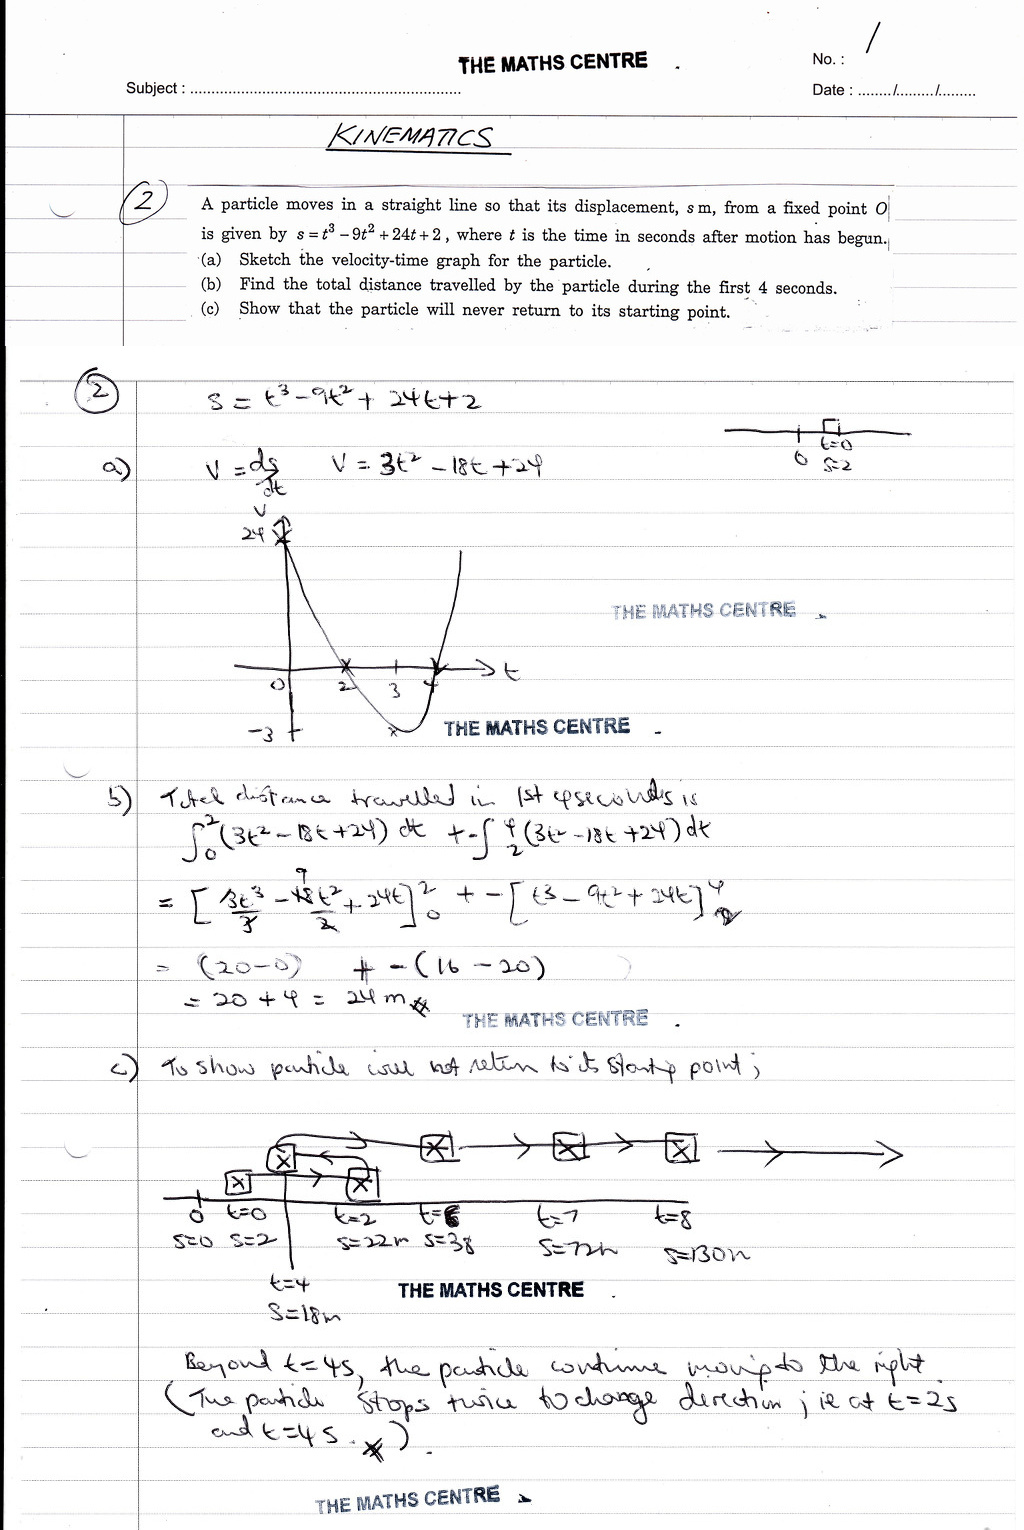 THE MATHS CENTRE
No. : 1
Subject : ..............................
Date : ......../........./.........
KINEMATICS
2
A particle moves in a straight line so that its displacement, s m, from a fixed point O
is given by s = t³ − 9t² + 24t + 2, where t is the time in seconds after motion has begun.
(a) Sketch the velocity-time graph for the particle.
(b) Find the total distance travelled by the particle during the first 4 seconds.
(c) Show that the particle will never return to its starting point.
2
s = t³ − 9t² + 24t + 2
t=0
0 s=2
a) V = ds/dt V = 3t² − 18t + 24
V
24
THE MATHS CENTRE
0 2 3 4 t
−3
THE MATHS CENTRE
b) Total distance travelled in 1st 4 seconds is
∫₀² (3t² − 18t + 24) dt + − ∫₂⁴ (3t² − 18t + 24) dt
= [3t³/3 − 18t²/2 + 24t]₀² + − [t³ − 9t² + 24t]₂⁴
9
= (20−0) + − (16 − 20)
= 20 + 4 = 24 m
THE MATHS CENTRE
c) To show particle will not return to its starting point;
0 t=0 t=2 t=6 t=7 t=8
s=0 s=2 s=22m s=38 s=72m s=130m
t=4
s=18m
THE MATHS CENTRE
Beyond t=4s, the particle continue moving to the right
(The particle stops twice to change direction; ie at t=2s
and t=4s.)
THE MATHS CENTRE